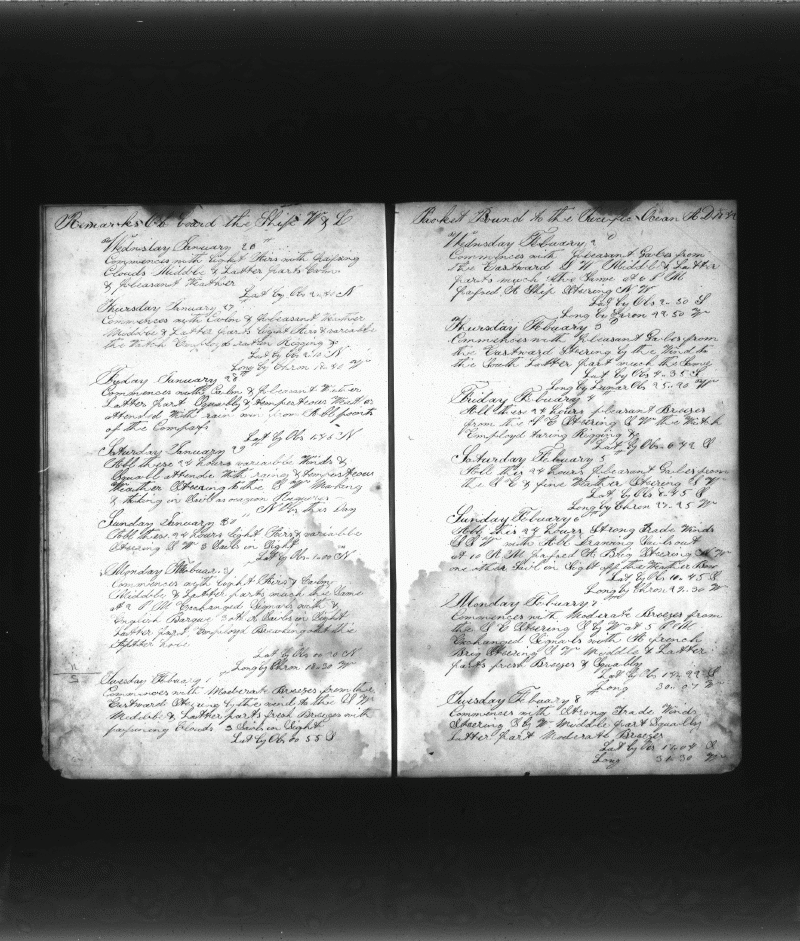 Remarks On board the Ship W & C
Wednsday January 26
Commences with Light Airs with Passing
Clouds Middle & Latter parts Calm
& pleasant Weather
Lat by Obs 2=40 N
Thursday January 27
Commences with Calm & pleasant Weather
Middle & Latter parts light Airs & variable
the Watch Employd ratlin Rigging &c
Lat by Obs 2=10 N
Long by Chron 18=40 W
Friday January 28
Commences with Calm & pleasant Weather
Latter part Squally & tempesteous Weather
attended With rain from All points
of the Compass
Lat by Obs N
Saturday January 29
All these 24 hours variable Winds &
Squalls attended With rain & tempesteous
Weather Steering to the S W Making
& taking in Sail as occasion Requires
No Obs this day
Sunday January 30
All these 24 hours light Airs & variable
Steering S W 3 Sails in Sight
Lat by Obs N
Monday 31
Commences with light Airs &
Middle & Latter parts much the Same
at 2 P M Exchanged Signals with A
English Barque 3 Sails in Sight
Latter part Employed Breaking out the
After hole
Lat by Obs 00=20 N
Long by Chron 18=30 W
Tuesday Febuary 1
Commences with Moderate Breezes from the
Eastward Steering by the wind to the S W
Middle & Latter parts fresh Breezes with
passing Clouds 3 Sails in Sight
Lat by Obs 00 55 S
Pocket Bound to the Pacific Ocean A D
Wednsday Febuary 2
Commences with pleasant Gales from
the Eastward S W Middle & Latter
parts much the Same At 6 P M
passed A Ship Steering N W
Lat by Obs 2=30 S
Long by Chron 22 50 W
Thursday Febuary 3
Commences with pleasant Gales from
the Eastward Steering by the Wind to
the South Latter part much the Same
Lat by Obs 4=35 S
Long by Lunar Obs 25=20 W
Friday Febuary 4
All these 24 hours pleasant Breezes
from the S E Steering S W the Watch
Employd Taring Rigging &c
Lat by Obs 6=42 S
Saturday Febuary 5
All this 24 hours pleasant Gales from
the S E & fine Weather Steering S W
Lat by Obs 8=45 S
Long by Chron 27=25 W
Sunday Febuary 6
All this 24 hours Strong Trade Winds
S S W with All Drawing Sails out
At 10 A M passed A Brig Steering N W
one other Sail in Sight off the Weather Bow
Lat by Obs 10=45 S
Long by Chron 29=30 W
Monday Febuary 7
Commences with Moderate Breezes from
the S E Steering S by W at 5 P M
Exchanged Signals with A french
Brig Steering S W Middle & Latter
parts fresh Breezes & Squally
Lat by Obs S
Long 30=07 W
Tuesday Febuary 8
Commences with Strong Trade Winds
Steering S by W Middle part Squally
Latter part Moderate Breezes
Lat by Obs 15=04 S
Long 31=30 W